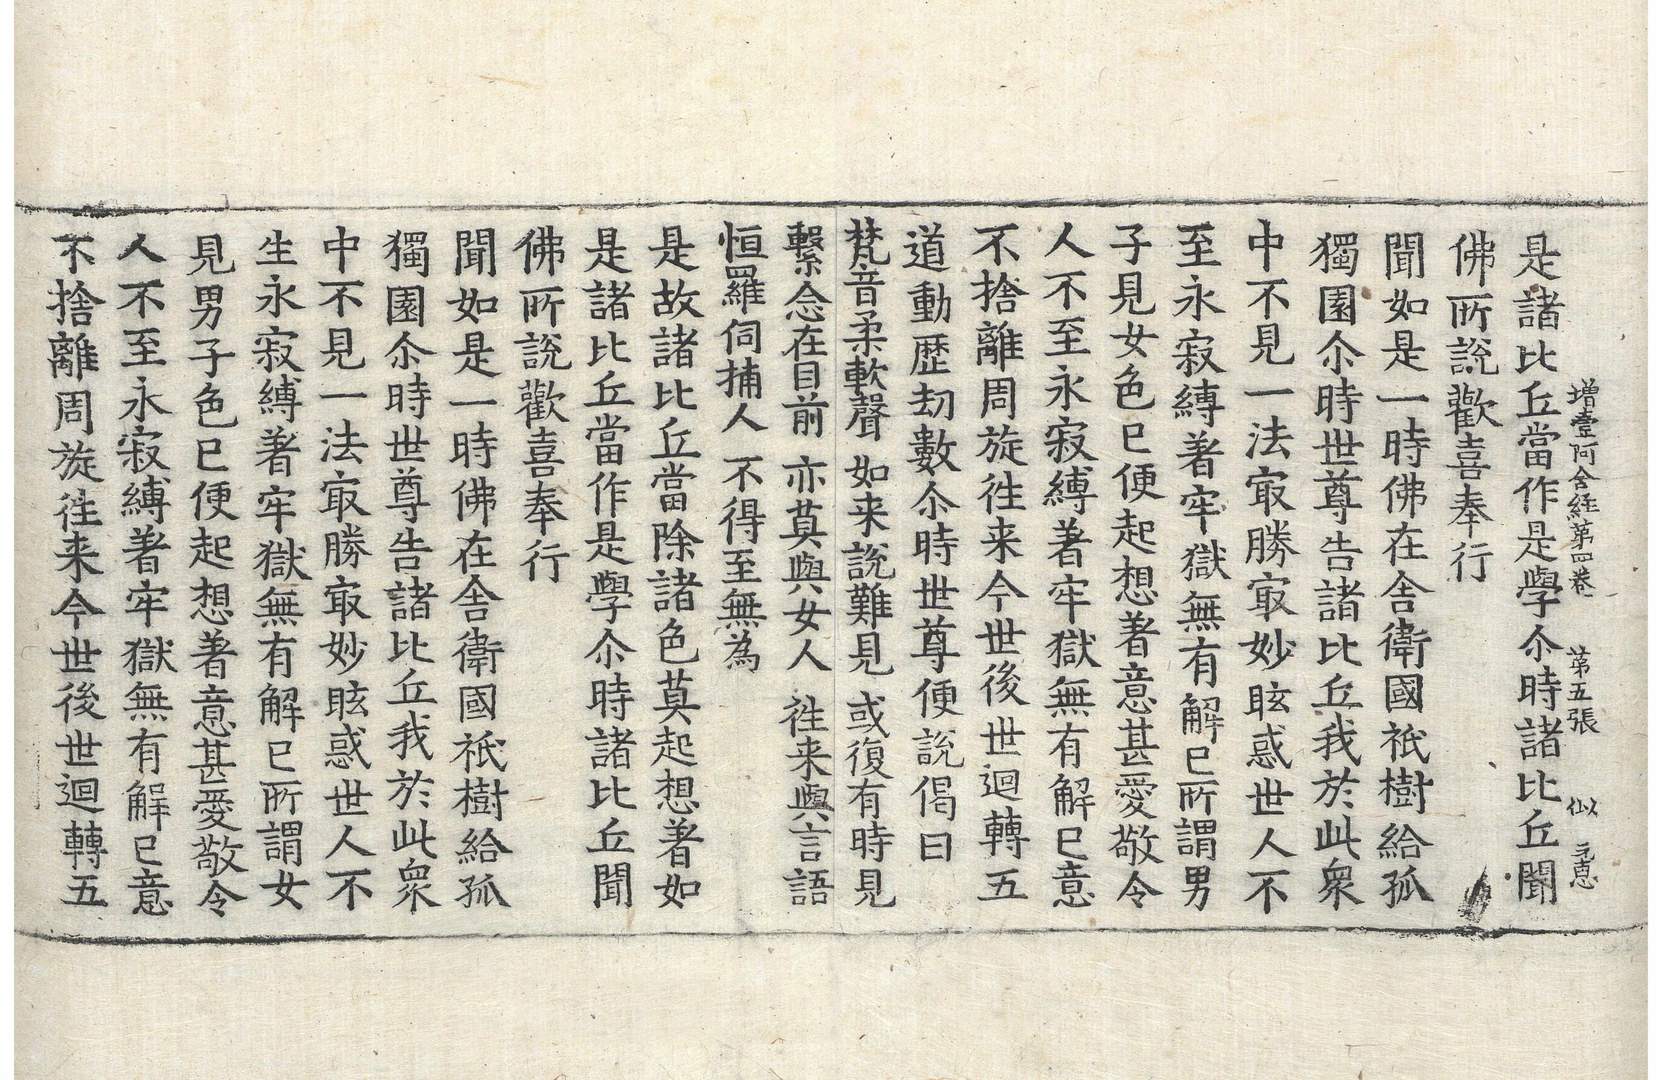 增壹阿含經第四卷 第五張 似 元惠
是諸比丘當作是學尒時諸比丘聞
佛所說歡喜奉行
聞如是一時佛在舍衛國祇樹給孤
獨園尒時世尊告諸比丘我於此衆
中不見一法冣勝冣妙眩惑世人不
至永寂縛著牢獄無有解已所謂男
子見女色已便起想著意甚愛敬令
人不至永寂縛著牢獄無有解已意
不捨離周旋徃来今世後世迴轉五
道動歷劫數尒時世尊便說偈曰
梵音柔軟聲 如来說難見 或復有時見
繫念在目前 亦莫與女人 徃来與言語
恒羅伺捕人 不得至無為
是故諸比丘當除諸色莫起想著如
是諸比丘當作是學尒時諸比丘聞
佛所說歡喜奉行
聞如是一時佛在舍衛國祇樹給孤
獨園尒時世尊告諸比丘我於此衆
中不見一法冣勝冣妙眩惑世人不
生永寂縛著牢獄無有解已所謂女
見男子色已便起想著意甚愛敬令
人不至永寂縛著牢獄無有解已意
不捨離周旋徃来今世後世迴轉五